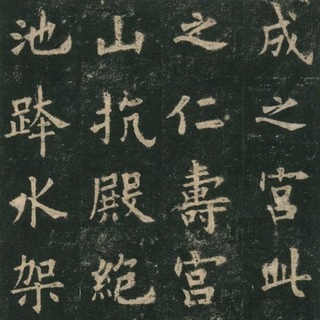 成之宮此
之仁壽宮
山抗殿絶
池跨水架